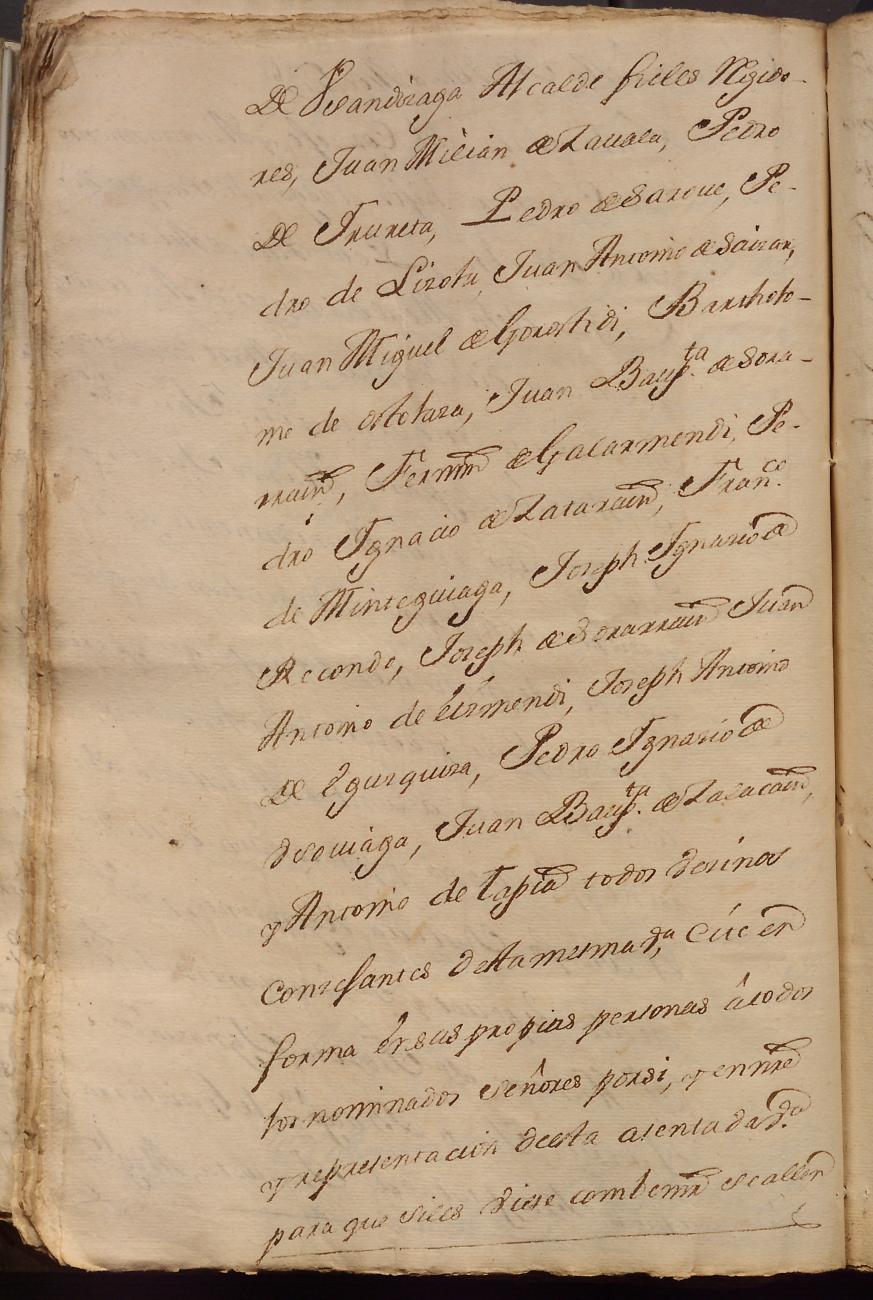 De Vsandizaga Alcalde fieles Regido-
res, Juan Milian de Zauala, Pedro
De Trureta, Pedro de Sarove, Pe-
dro de Lizola, Juan Antonio de Saizar,
Juan Miguel de Gorostidi, Bartholo-
me de Ostolaza, Juan Baup.ta de Sora-
rrain, Fermin de Galarmendi, Pe-
dro Ignacio de Zatarain, Fran.co
de Minteguiaga, Joseph Ignacio de
Recondo, Joseph de Sorarrain Juan
Antonio de Eizmendi, Joseph Antonio
De Egurquiza, Pedro Ignacio de
Juan Baup.ta de Zalacain,
y Antonio de Tapia todos vecinos
Concejantes desta mesma
forma en sus propias personas â todos
los nominados señores porsi, y en nre
y representacion desta asentada
para que siles diere combenir se allen